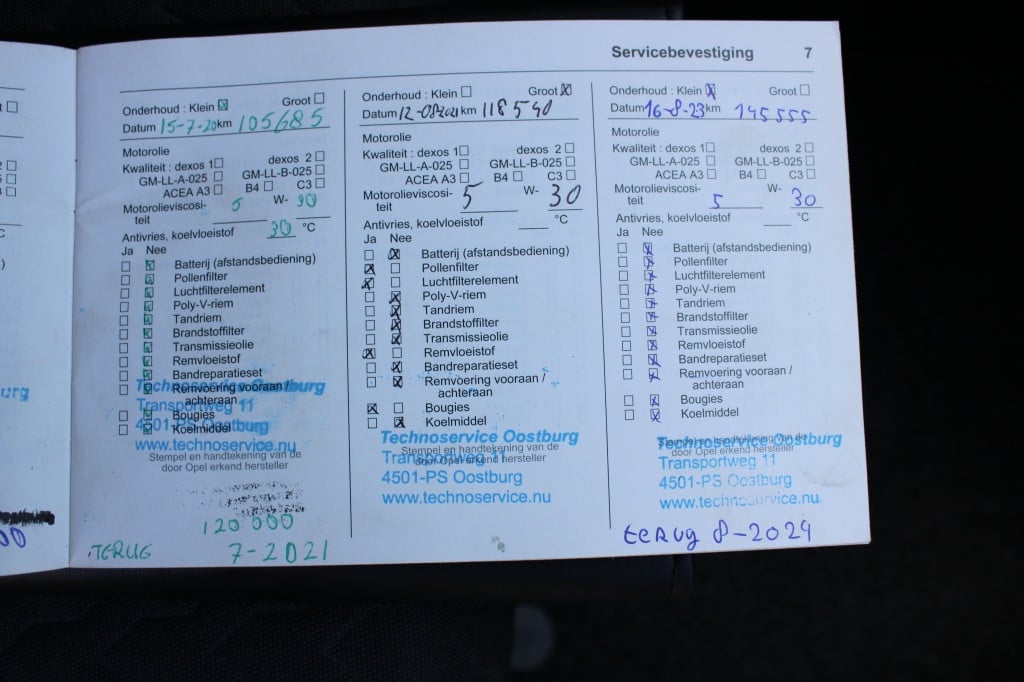 Servicebevestiging 7
Onderhoud : Klein ☒ Groot ☐
Datum 15-7-20 km 105685
Motorolie
Kwaliteit : dexos 1 ☐ dexos 2 ☐
GM-LL-A-025 ☐ GM-LL-B-025 ☐
ACEA A3 ☐ B4 ☐ C3 ☐
Motorolieviscosi-
teit 5 W- 30
Antivries, koelvloeistof 30 °C
Ja Nee
☐ ☒ Batterij (afstandsbediening)
☐ ☒ Pollenfilter
☐ ☒ Luchtfilterelement
☐ ☒ Poly-V-riem
☐ ☒ Tandriem
☐ ☒ Brandstoffilter
☐ ☒ Transmissieolie
☐ ☒ Remvloeistof
☐ ☒ Bandreparatieset
☐ ☒ Remvoering vooraan /
achteraan
☐ ☒ Bougies
☐ ☒ Koelmiddel
Technoservice Oostburg
Transportweg 11
4501-PS Oostburg
www.technoservice.nu
Stempel en handtekening van de
door Opel erkend hersteller
120 000
TERUG 7-2021
Onderhoud : Klein ☐ Groot ☒
Datum 12-08-2021 km 118540
Motorolie
Kwaliteit : dexos 1 ☐ dexos 2 ☐
GM-LL-A-025 ☐ GM-LL-B-025 ☐
ACEA A3 ☐ B4 ☐ C3 ☐
Motorolieviscosi-
teit 5 W- 30
Antivries, koelvloeistof °C
Ja Nee
☐ ☒ Batterij (afstandsbediening)
☒ ☐ Pollenfilter
☒ ☐ Luchtfilterelement
☐ ☒ Poly-V-riem
☐ ☒ Tandriem
☐ ☒ Brandstoffilter
☐ ☒ Transmissieolie
☒ ☐ Remvloeistof
☐ ☒ Bandreparatieset
☐ ☒ Remvoering vooraan /
achteraan
☒ ☐ Bougies
☐ ☒ Koelmiddel
Technoservice Oostburg
Stempel en handtekening van de
Transportweg 11
door Opel erkend hersteller
4501-PS Oostburg
www.technoservice.nu
Onderhoud : Klein ☒ Groot ☐
Datum 16-8-23 km 145555
Motorolie
Kwaliteit : dexos 1 ☐ dexos 2 ☐
GM-LL-A-025 ☐ GM-LL-B-025 ☐
ACEA A3 ☐ B4 ☐ C3 ☐
Motorolieviscosi-
teit 5 W- 30
Antivries, koelvloeistof °C
Ja Nee
☐ ☒ Batterij (afstandsbediening)
☐ ☒ Pollenfilter
☐ ☒ Luchtfilterelement
☐ ☒ Poly-V-riem
☐ ☒ Tandriem
☐ ☒ Brandstoffilter
☐ ☒ Transmissieolie
☐ ☒ Remvloeistof
☐ ☒ Bandreparatieset
☐ ☒ Remvoering vooraan /
achteraan
☐ ☒ Bougies
☐ ☒ Koelmiddel
Technoservice Oostburg
Stempel en handtekening van de
door Opel erkend hersteller
Transportweg 11
4501-PS Oostburg
www.technoservice.nu
terug 8-2024